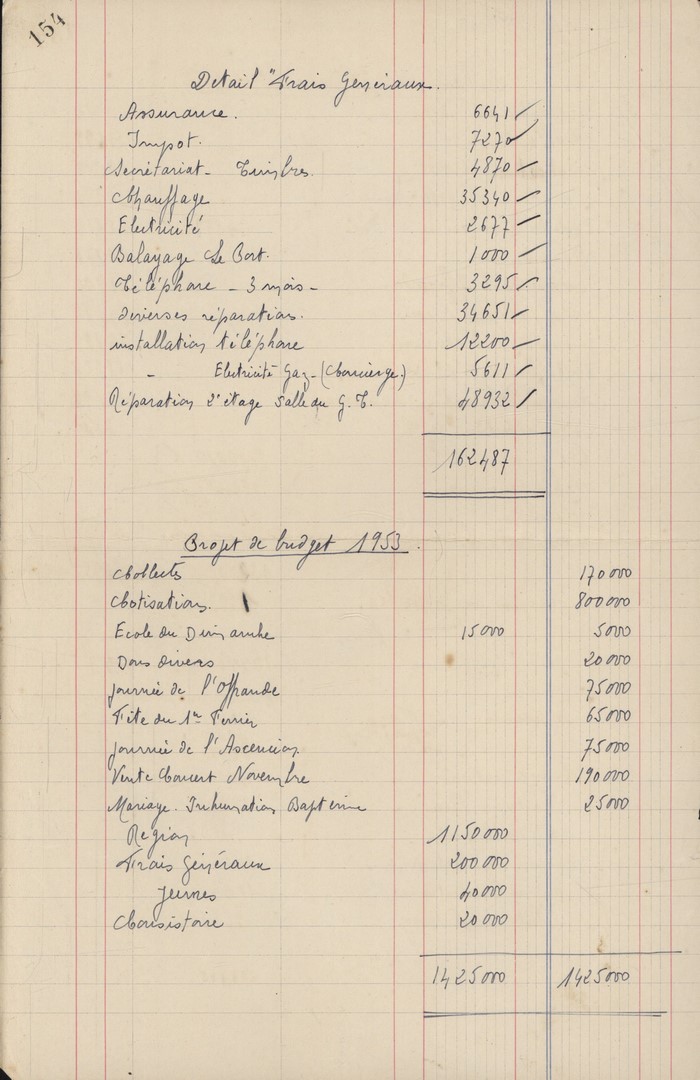 154
Detail "Frais Généraux.
Assurance. 6641
Impot. 7270
Secrétariat - Timbres. 4870
Chauffage 35340
Electricité 2677
Balayage Le Port. 1000
Téléphone - 3 mois - 3295
diverses réparations. 34651
installation téléphone 12200
- Electricité Gaz - (Concierge) 5611
Réparation 2e étage Salle du G. T. 48932
162487
Projet de budget 1953.
Collects 170000
Cotisations. 800000
Ecole du Dimanche 15000 5000
Dons divers 20000
Journée de l'Offrande 75000
Fête du 1er Février 65000
Journée de l'Ascencion 75000
Vente Concert Novembre 190000
Mariage. Inhumation Baptême 25000
Region 1150000
Frais Généraux 200000
Jeunes 40000
Consistoire 20000
1425000 1425000